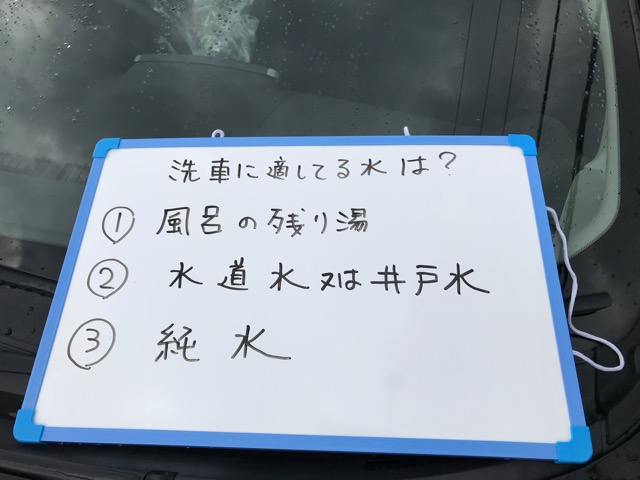 洗車に適してる水は？
① 風呂の残り湯
② 水道水又は井戸水
③ 純水